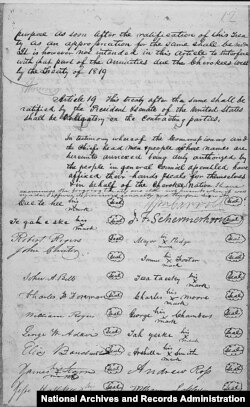 purpose as soon after the ratification of this Trea
ty as an appropriation for the same shall be made
It is however not intended in this Article to interfere
with that part of the Annuities due the Cherokees West
by the Treaty of 1819
Article 19. This Treaty after the same shall be
ratified by the President & Senate of the United States
shall be obligatory on the Contracting parties.
In testimony whereof the Commissioners and
the Chiefs head men & people whose names are
hereunto annexed being duly authorized by
the people in general Council assembled have
affixed their hands & seals for themselves
& in behalf of the Cherokee Nation
Cae te hee his mark Seal J. F. Schermerhorn
Te gah e ske his mark Seal
Robert Rogers Seal Major his x mark Ridge Seal
John Gunter Seal
James his x mark Foster Seal
John A Bell Seal Tesa ta esky his mark Seal
Charles F Foreman Seal Charles his x mark Moore Seal
William Rogers Seal George his x mark Chambers Seal
George W. Adair Seal Tah yeske his mark Seal
Elias Boudinot Seal Archilla his x mark Smith Seal
James Starr his mark Seal Andrew Ross Seal
Jesse Seal William Seal
National Archives and Records Administration